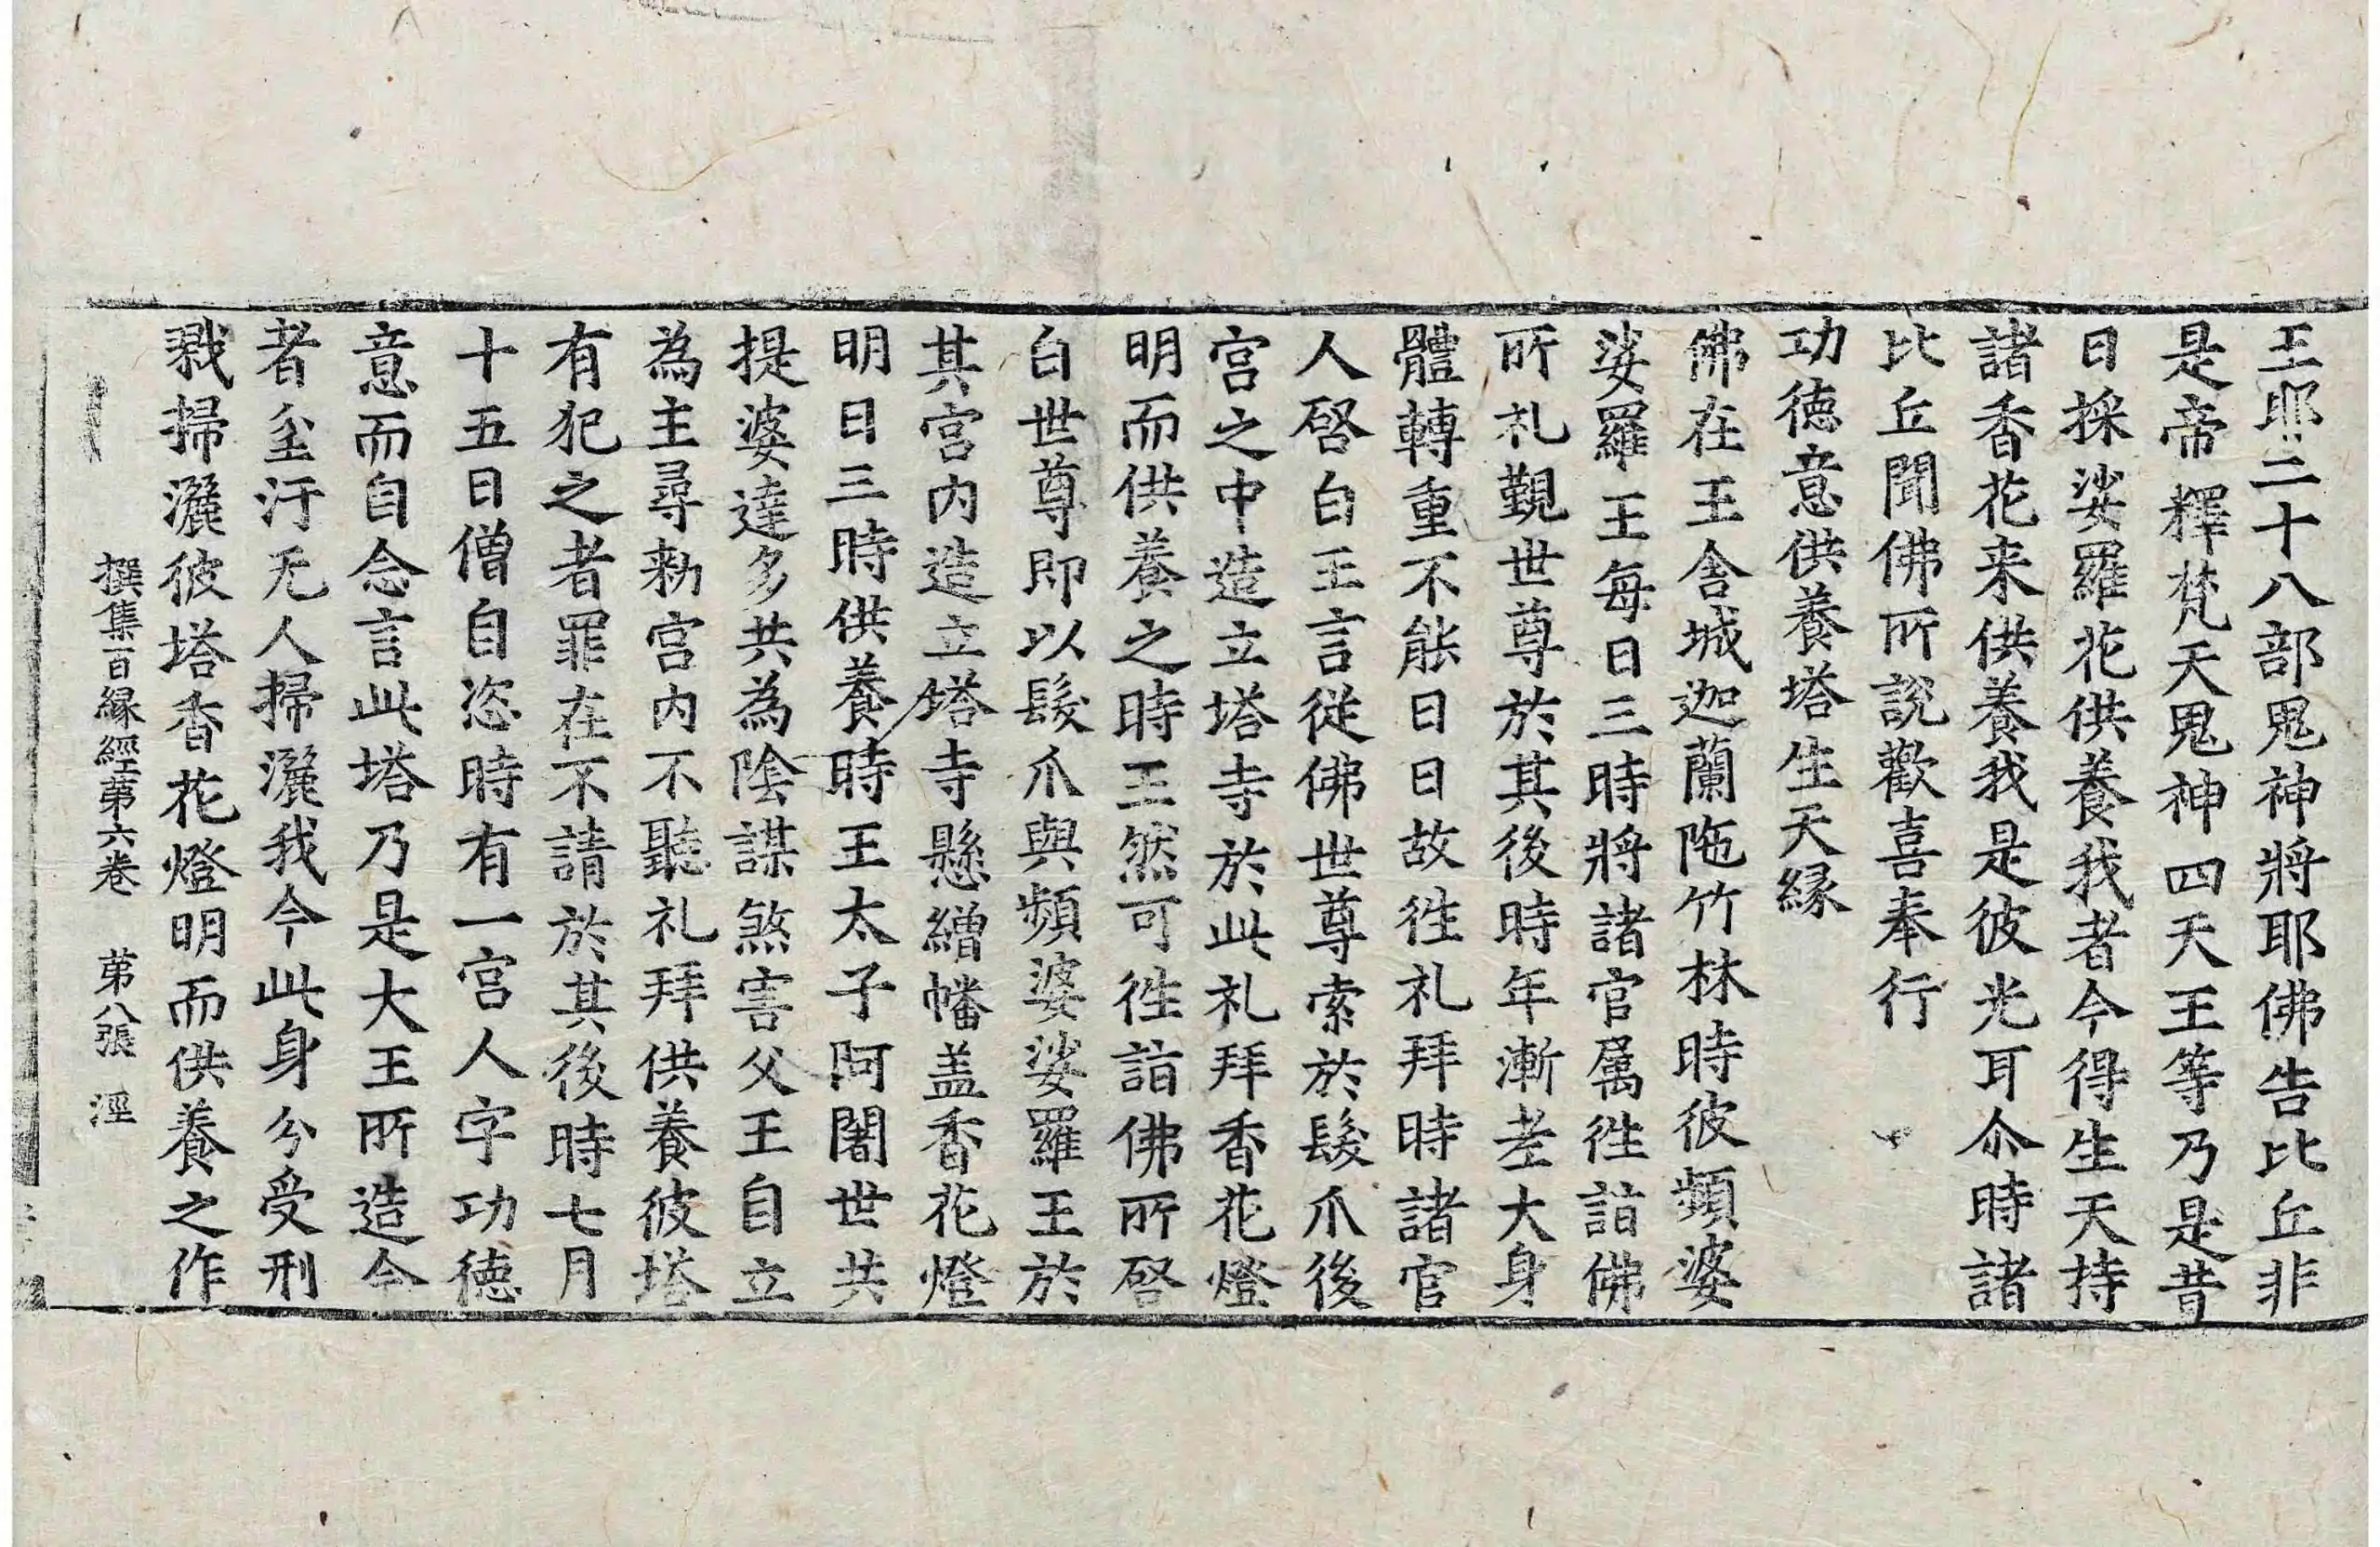 王耶二十八部鬼神將耶佛告比丘非
是帝釋梵天鬼神四天王等乃是昔
日採娑羅花供養我者今得生天持
諸香花来供養我是彼光耳尒時諸
比丘聞佛所說歡喜奉行
功德意供養塔生天緣
佛在王舍城迦蘭陁竹林時彼頻婆
娑羅王每日三時將諸官属徃詣佛
所礼覲世尊於其後時年漸老大身
體轉重不能日日故徃礼拜時諸官
人啓白王言從佛世尊索於髮爪後
宮之中造立塔寺於此礼拜香花燈
明而供養之時王然可徃詣佛所啓
白世尊即以髮爪與頻婆娑羅王於
其宮內造立塔寺懸繒幡盖香花燈
明日三時供養時王太子阿闍世共
提婆達多共為陰謀煞害父王自立
為主尋勑宮內不聽礼拜供養彼塔
有犯之者罪在不請於其後時七月
十五日僧自恣時有一宮人字功德
意而自念言此塔乃是大王所造今
者坌汙无人掃灑我今此身分受刑
戮掃灑彼塔香花燈明而供養之作
撰集百緣經第六卷 第八張 涇